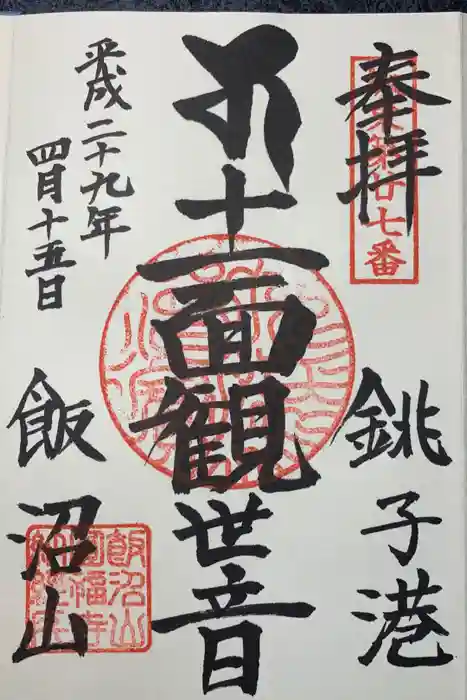 奉拝
銚子港
十一面観世音
平成二十九年
四月十五日
飯沼山
廿七番
飯沼山
圓福寺